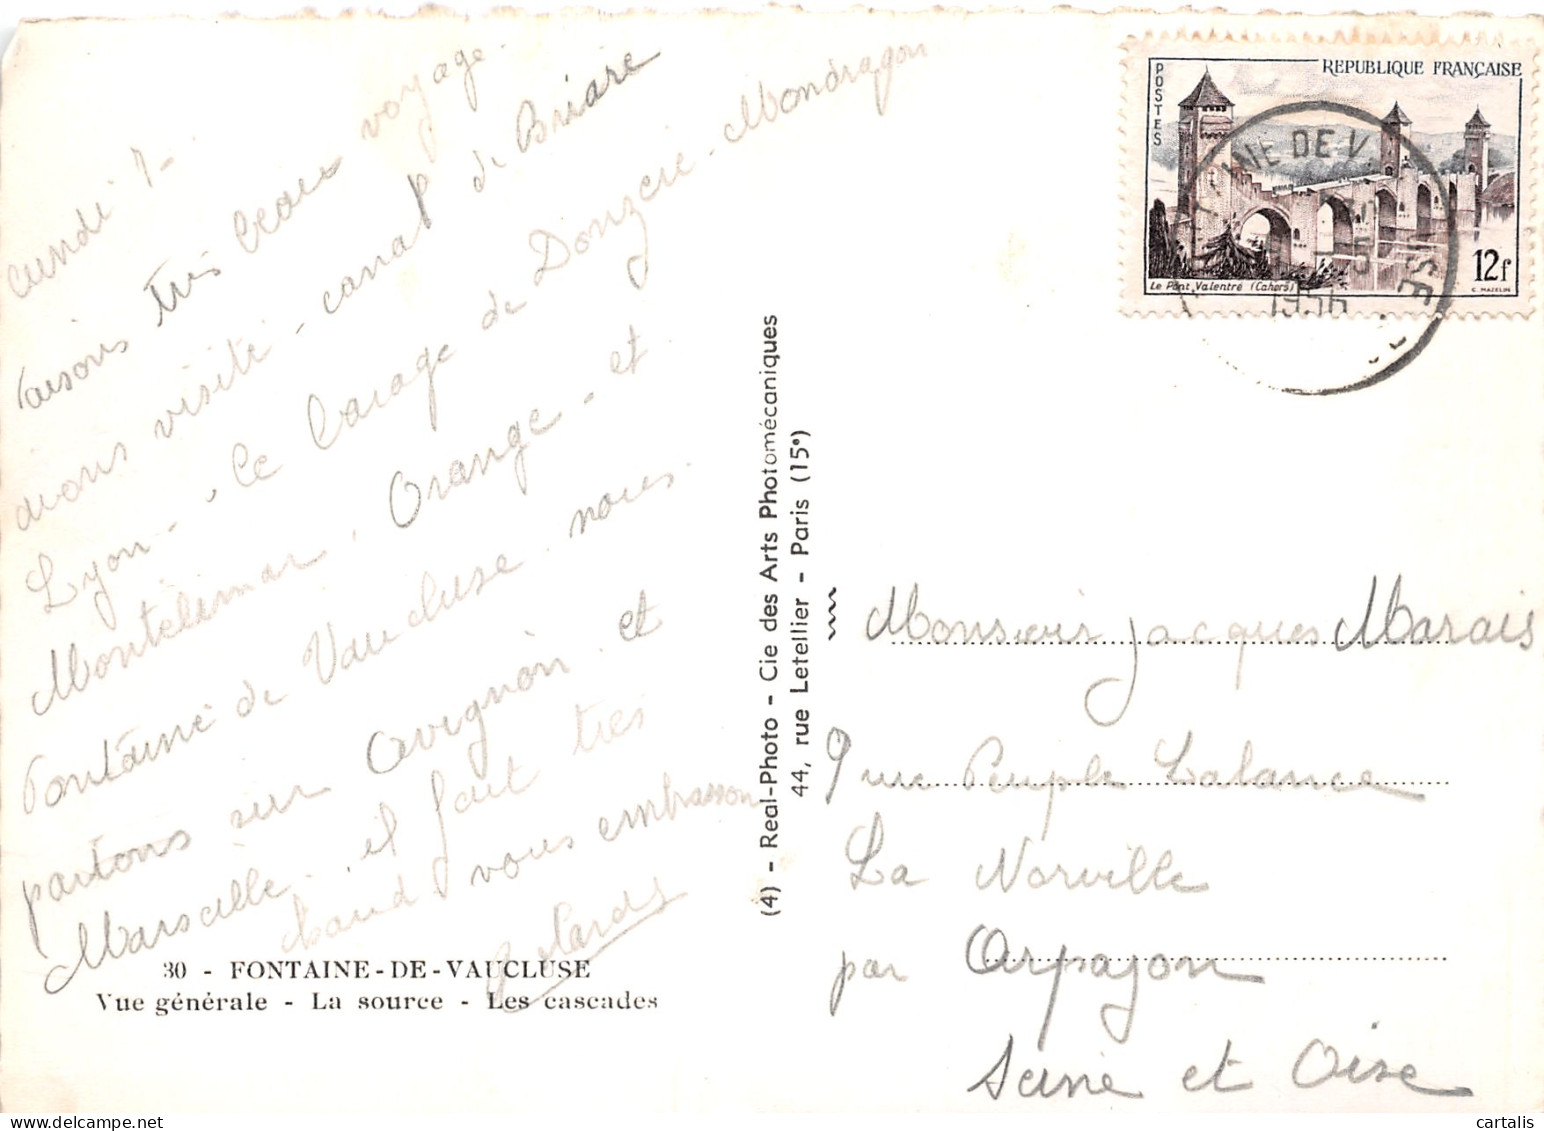 lundi 7 -
faisons très beau voyage.
avons visité - canal de Briare
Lyon - le barage de Donzère - Mondragon
Montélimar, Orange - et
Fontaine de Vaucluse. nous
partons sur Avignon. et
Marseille. il fait très
chaud vous embrassons
30 - FONTAINE-DE-VAUCLUSE
Vue générale - La source - Les cascades
(4) - Real-Photo - Cie des Arts Photomécaniques
44, rue Letellier - Paris (15e)
POSTES
REPUBLIQUE FRANÇAISE
Le Pont Valentré (Cahors)
12f
C. MAZELIN
1956
Monsieur Jacques Marais
9 rue Peuple Lalance
La Norville
par Arpajon
Seine et Oise
cartalis